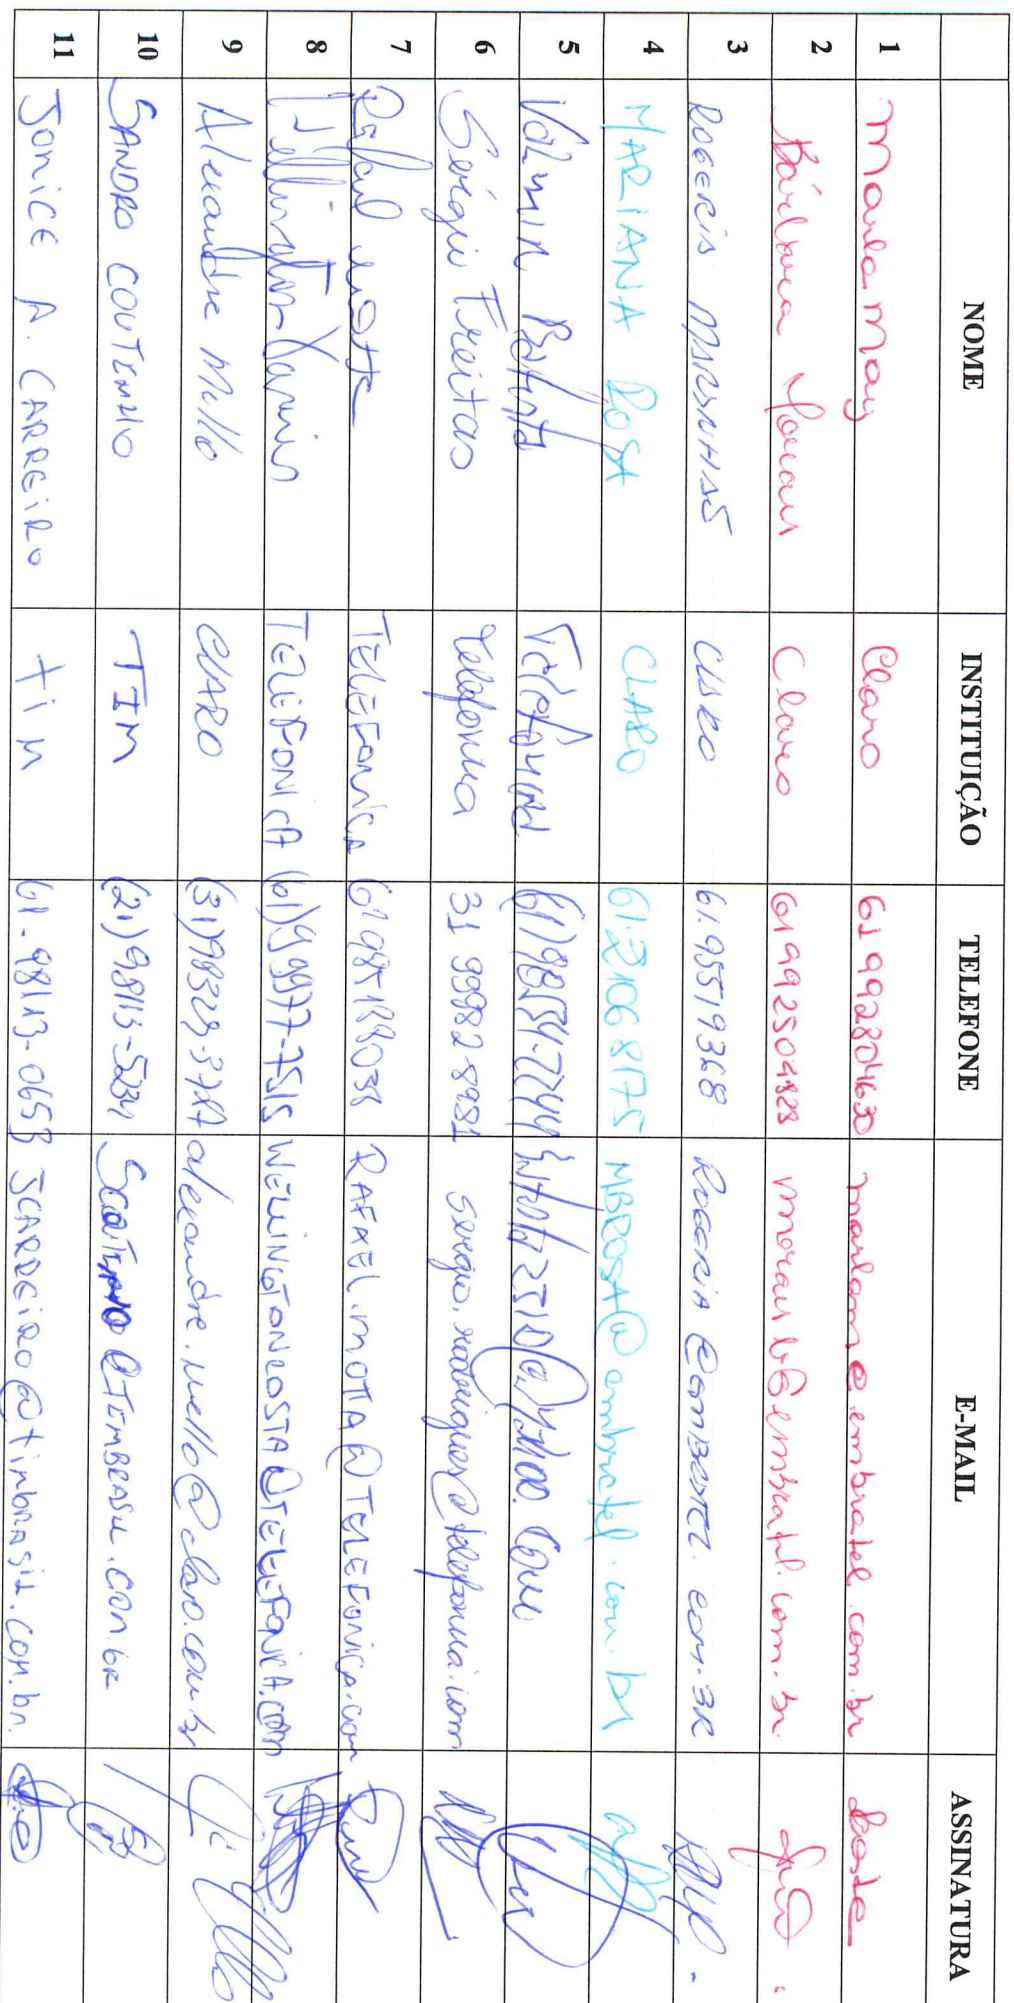 NOME INSTITUIÇÃO TELEFONE E-MAIL ASSINATURA
1 Marla May Claro 61 992804630 marlam@embratel.com.br
2 Bárbara Morais Claro 61 992504828 moraisb@embratel.com.br
3 ROGERIA CLARO 61.95519368 ROGERIA@EMBRATEL.COM.BR
4 MARIANA ROSA CLARO 61.21068175 MBROSA@embratel.com.br
5 Batista Telefonica (61)98154-2244
6 Sérgio Freitas Telefonica 31 99982-8981 sergio.rodrigues@telefonica.com
7 Rafael Motta TELEFONICA 61 985188038 RAFAEL.MOTTA@TELEFONICA.COM
8 Wellington TELEFONICA (61)99977-7515 WELLINGTON.COSTA@TELEFONICA.COM
9 Alexandre Mello CLARO alexandre.mello@claro.com.br
10 SANDRO COUTINHO TIM (21)98113-5234 SCOUTINHO@TIMBRASIL.COM.BR
11 JONICE A. CARREIRO tim 61-98113-0653 JCARREIRO@timbrasil.com.br.